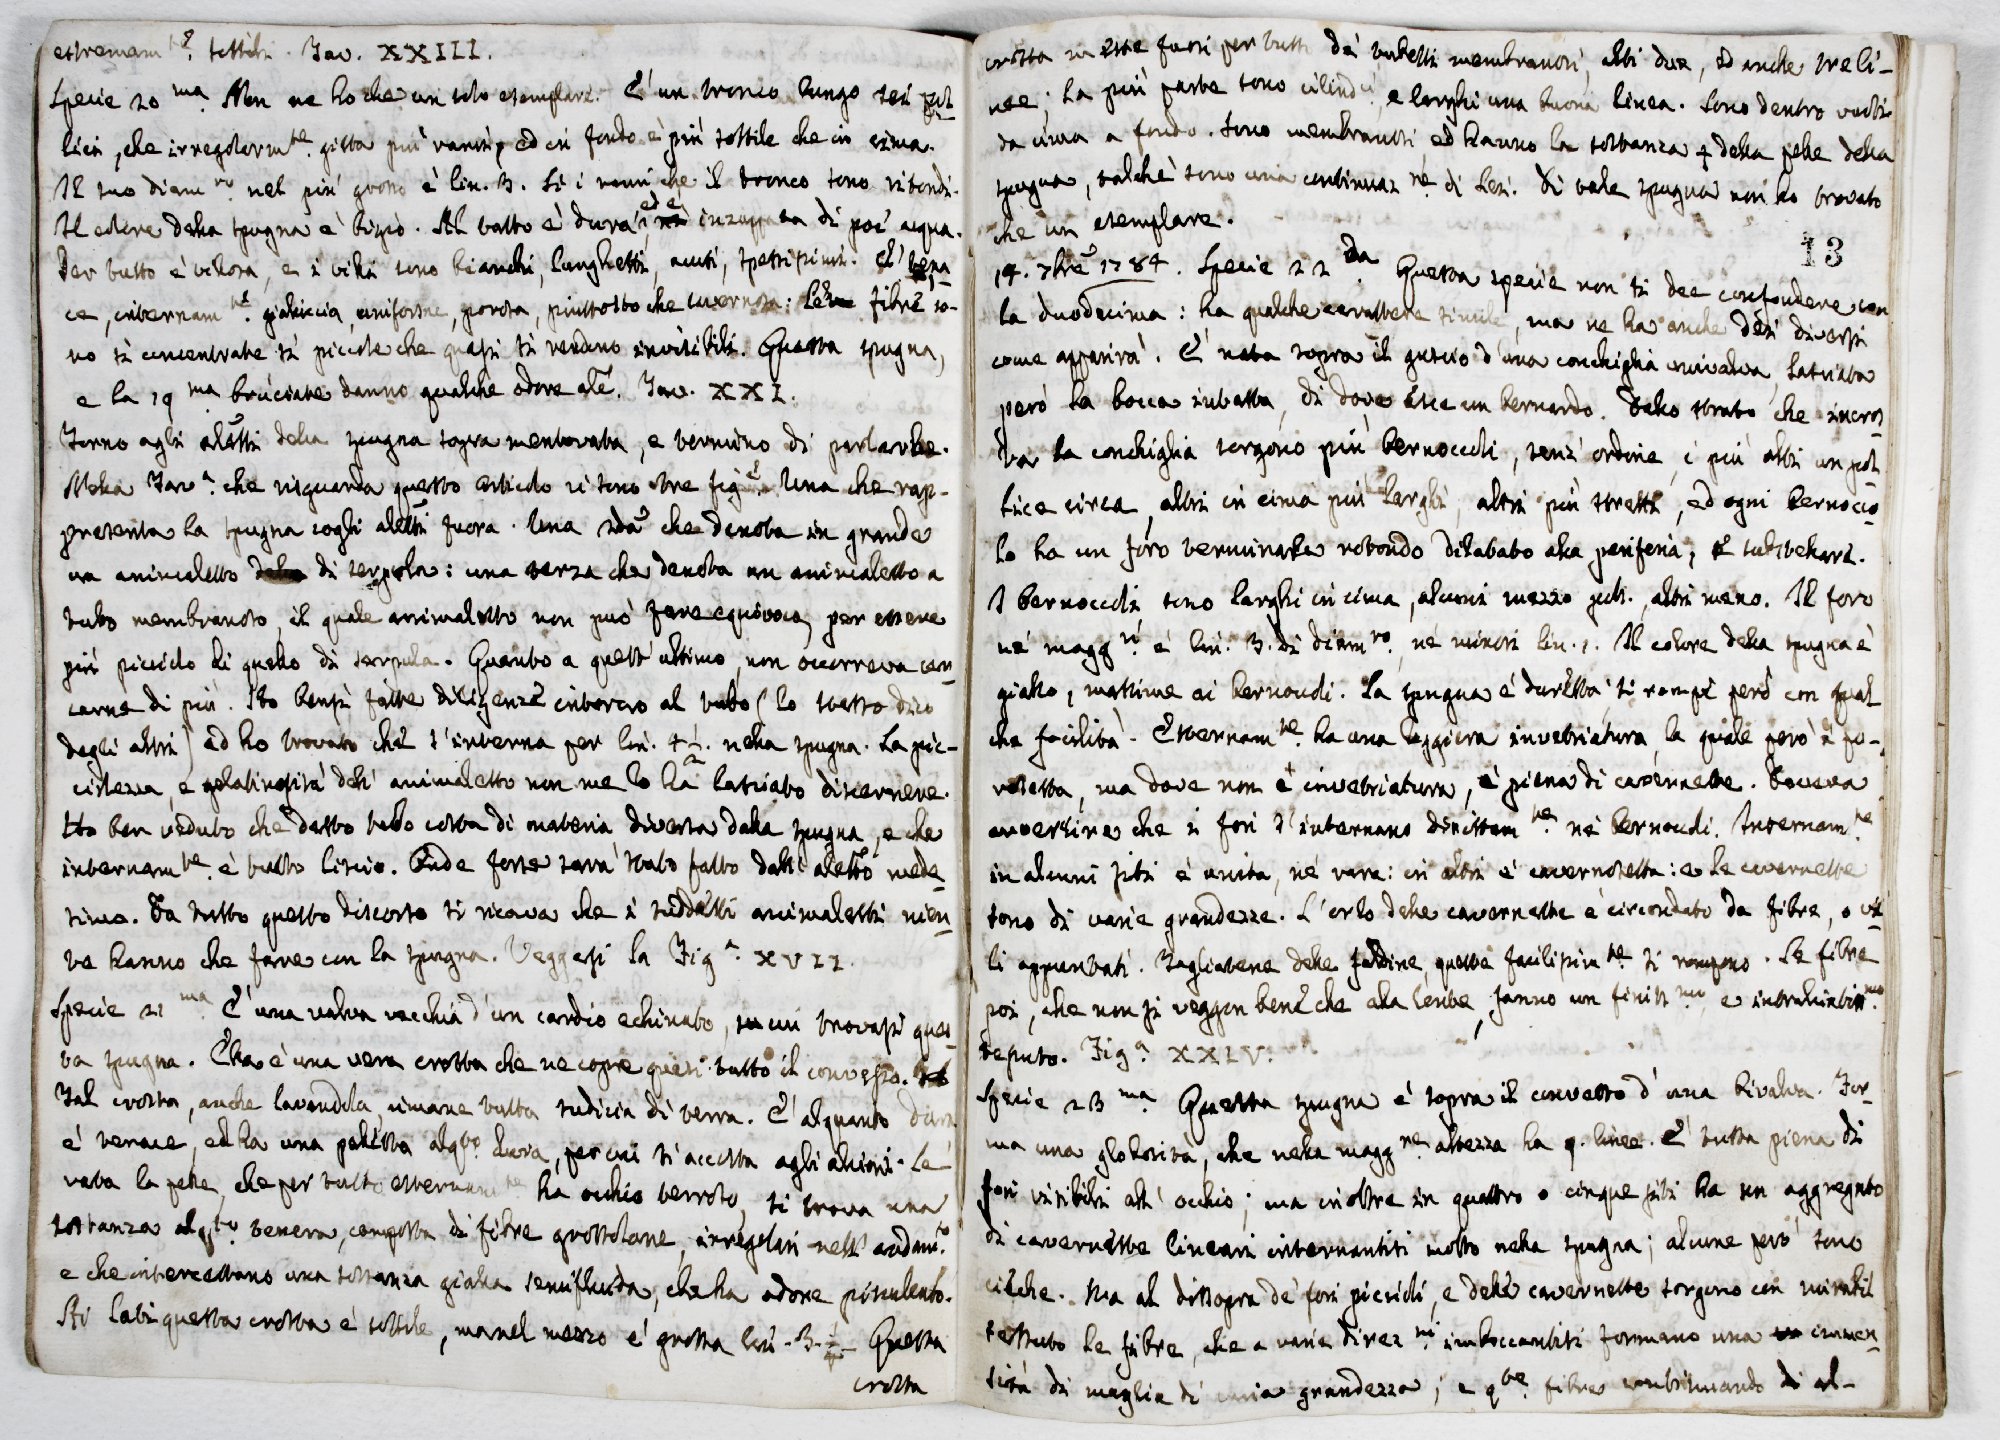 estremam.te sottili. Tav. XXIII.
Specie 20 ma. Non ne ho che un solo esemplare. È un tronco lungo sei pol-
lici, che irregolarm.te gitta più rami, ed in fondo è più sottile che in cima.
Il suo diam.ro nel più grosso è lin. 3. Sì i rami che il tronco sono ritondi.
Il colore della spugna è bigio. Al tatto è dura, ed è inzuppata di poc' acqua.
Per tutto è villosa, e i villi sono bianchi, lunghetti, acuti, spessissimi. È tena
ce, internam.te gialliccia, uniforme, porosa, piuttosto che cavernosa: Le fibre so-
no sì concentrate sì piccole che quasi si rendono invisibili. Questa spugna,
e la 19 ma bruciate danno qualche odore ale. Tav. XXI.
Torno agli aletti della spugna sopra mentovata, e termino di parlarne.
Nella Tav.a che risguarda questo articolo vi sono tre fig.e Una che rap-
presenta la spugna cogli aletti fuora. Una 2da che denota in grande
un animaletto di serpola: una terza che denota un animaletto a
tubo membranoso, il quale animaletto non può fare equivoco, per essere
più picciolo di quello di serpula. Quanto a quest' ultimo, non occorreva cer
carne di più. Ho bensì fatte diligenze intorno al tubo (lo stesso dico
degli altri) ed ho trovato che s' interna per lin. 4 1/2. nella spugna. La pic-
ciolezza, e gelatinosità dell' animaletto non me lo ha lasciato discernere.
Ho ben veduto che detto tubo costa di materia diversa dalla spugna, e che
internam.te è tutto liscio. Onde forse sarà stato fatto dall' aletto mede
simo. Da tutto questo discorso si ricava che i suddetti animaletti nien
te hanno che fare con la spugna. Veggasi la Fig.a XVII.
Specie 21 ma. È una valva vecchia d' un cardio echinato, su cui trovasi ques
ta spugna. Ella è una vera crosta che ne copre quasi tutto il convesso.
Tal crosta, anche lavandola, rimane tutta sudicia di terra. È alquanto dura
è tenace, ed ha una pelletta alq.to dura, per cui s' accosta agli alcioni. Le-
vata la pelle, che per tutto esternam.te ha occhio terroso, si trova una
sostanza alq.to tenera, composta di fibre grossolane, irregolari nell' andam.to
e che intercettano una sostanza gialla semifluida, che ha odore pisculento.
Ai lati questa crosta è sottile, ma nel mezzo è grossa lin. 3. Questa
crosta
crosta mette fuori per tutto de' tubetti membranosi, alti due, ed anche tre li-
nee; la più parte sono cilindrici, e larghi una buona linea. Sono dentro vuoti
da cima a fondo. Sono membranosi ed hanno la sostanza della pelle della
spugna, talchè sono una continuaz.ne di lei. Di tale spugna non ho trovato
che un esemplare.
13
14. 7bre 1784. Specie 22 da. Questa specie non si dee confondere con
la duodecima: ha qualche carattere simile, ma ne ha anche dei diversi
come apparirà. È nata sopra il guscio d' una conchiglia univalva, lasciata
però la bocca intatta, di dove esce un bernardo. Dallo strato che incros
ta la conchiglia sorgono più bernoccoli, senz' ordine, i più alti un pol
lice circa, altri in cima più larghi, altri più stretti, ed ogni bernocco
lo ha un foro terminale rotondo dilatato alla periferia, e substellare.
I bernoccoli sono larghi in cima, alcuni mezzo poll., altri meno. Il foro
ne' magg.ri è lin. 3. di diam.ro, ne' minori lin. 1. Il colore della spugna è
giallo, massime ai bernoccoli. La spugna è duretta: si rompe però con qual
che facilità. Esternam.te ha una leggiera invetriatura, la quale però è po-
rosetta, ma dove non è invetriatura, è piena di cavernette. Doveva
avvertire che i fori s' internano dirittam.te ne' bernoccoli. Internam.te
in alcuni siti è unita, nè rara: in altri è cavernosetta: e le cavernette
sono di varie grandezze. L' orlo delle cavernette è circondato da fibre, o vil
li appuntati. Tagliatene delle faldine, queste facilissim.te si rompono. Le fibre
poi, che non si veggon bene che alla lente, fanno un finiss.mo, e intralciatiss.mo
tessuto. Fig.a XXIV.
Specie 23 ma. Questa spugna è sopra il convesso d' una bivalva. For-
ma una globosità, che nella magg.re altezza ha 9. linee. È tutta piena di
fori visibili all' occhio; ma inoltre in quattro o cinque siti ha un aggregato
di cavernette lineari internantisi molto nella spugna; alcune però sono
cieche. Ma al dissopra de' fori piccioli, e delle cavernette sorgono con mirabil
tessuto le fibre, che a varie direz.ni imboccantisi formano una immen
sità di maglie di varia grandezza; e q.te fibre continuando di al-